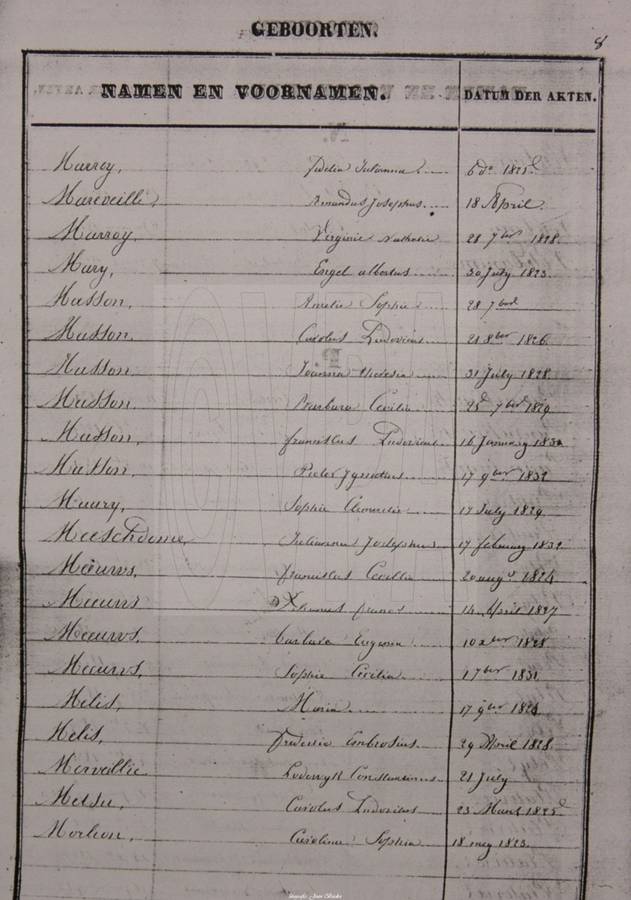 GEBOORTEN.
8
NAMEN EN VOORNAMEN. DATUM DER AKTEN.
Marrey, Julianna
Mareveille, Amandus Josephus. 18 April.
Marroy, Virginie Nathalie 28 7ber 1828.
Mary, Engel albertus 30 July 1823.
Masson, Amelie Sophie 28 7ber
Masson. Carolus Ludovicus 21 8ber 1826
Masson. Joanna theresia 31 July 1828.
Masson. Barbara Cecilia 7ber 1829
Masson, franciscus Ludovicus 16 January
Masson. Pieter 17 9ber 1832
Maury, Sophie 17 July 1829.
Julianna Josephus 17 february 1832.
Meeuws, franciscus Cecilia 20 augt
Meeuws francis 14 April 1827
Meeuws, barbara Eugenia 10 1828
Meeuws, Sophie Cecilia 1831
Melis, Maria 17 9ber
Melis, Ambrosius 29 April 1828.
Merveillie Lodewyk Constantinus 21 July
Metsu, Carolus Ludovicus 23 Mars 1825
Morleon, Carolina Sophia 18 mey 1823.